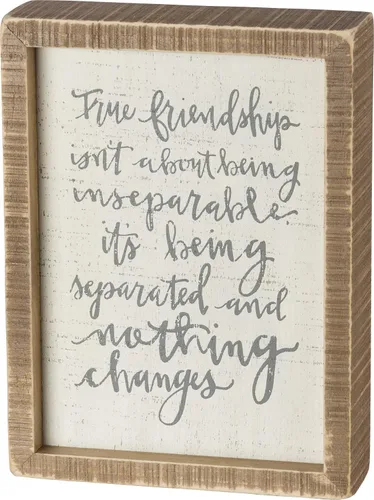 True friendship
isn't about being
inseparable.
it's being
separated and
nothing
changes